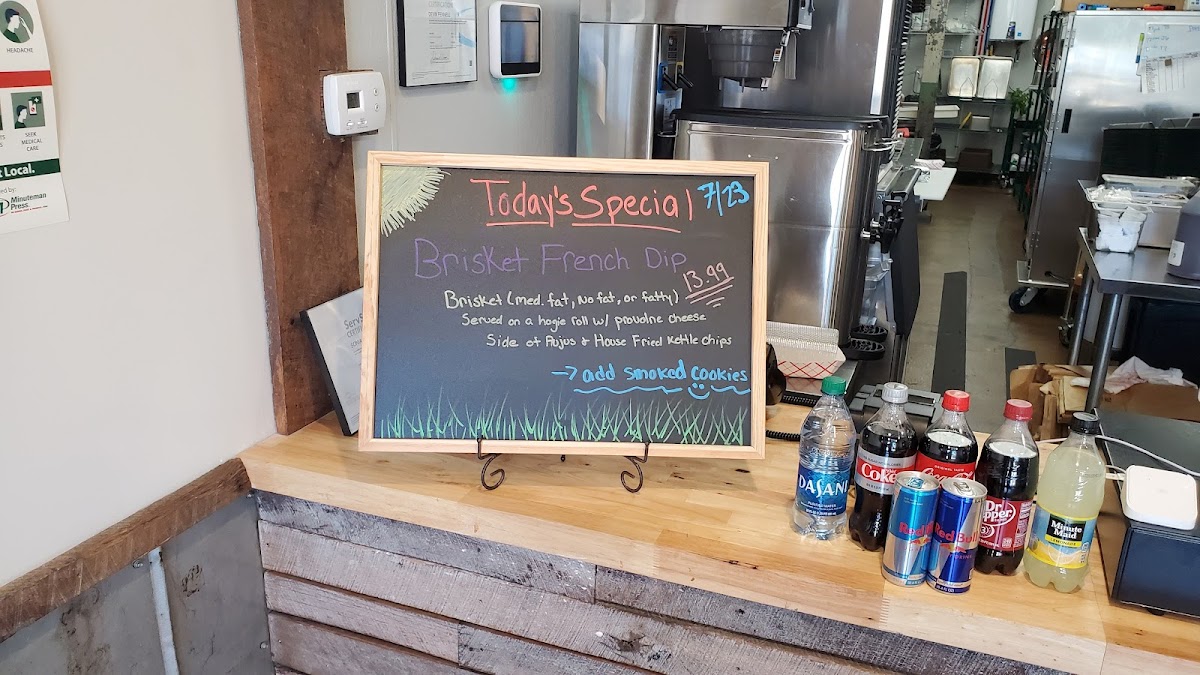 HEADACHE
SEEK
MEDICAL
CARE
t Local.
Minuteman
Press
Today's Special 7/23
Brisket French Dip
13.99
Brisket (med. fat, No fat, or fatty)
Served on a hogie roll w/ provolne cheese
Side of Aujus & House Fried Kettle chips
→ add smoked cookies
DASANI
Diet
Coke
Dr
Pepper
Red Bull
Red Bull
Minute
Maid
LEMONADE